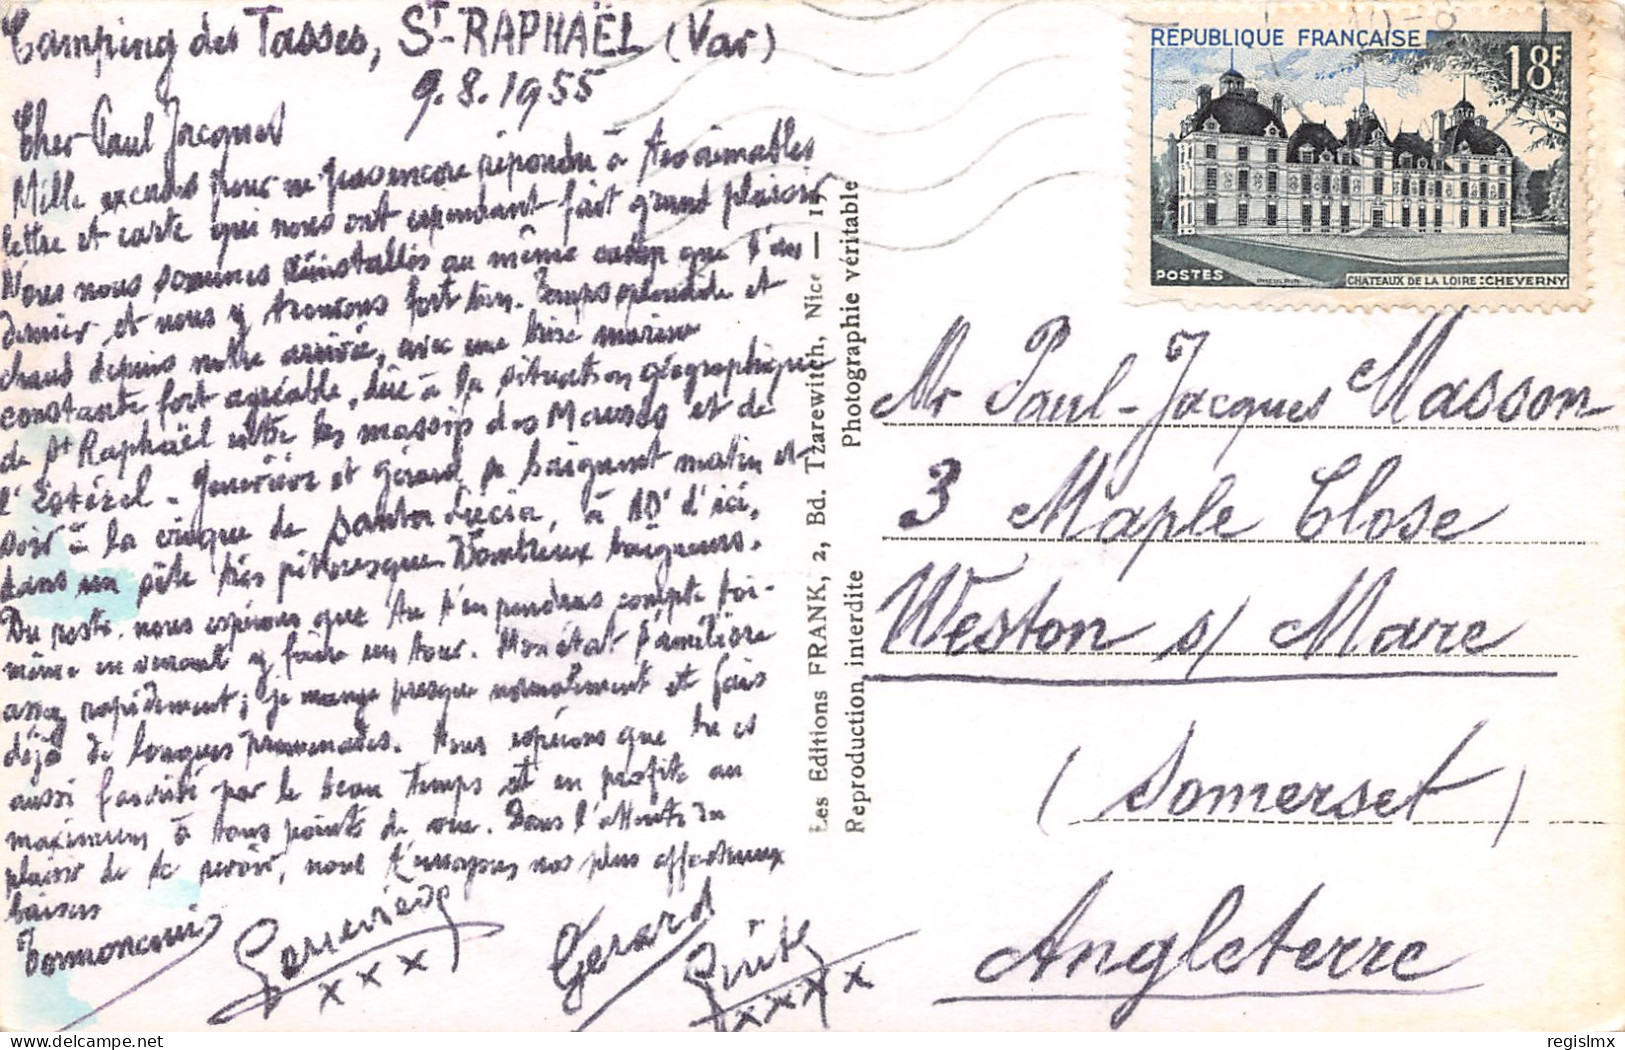 Camping des Tasses, St-RAPHAËL (Var)
9.8.1955
Cher Paul Jacques
Mille excuses pour ne pas encore répondu à tes aimables
lettre et carte qui nous ont cependant fait grand plaisir
Nous nous sommes réinstallés au même camp que l'an
dernier et nous y trouvons fort bien. Temps splendide et
chaud depuis notre arrivée, avec une brise marine
constante fort agréable, due à la situation géographique
de St Raphaël entre les massifs des Maures et de
l'Estérel - Geneviève et Gérard se baignent matin et
soir à la crique de Santa Lucia, à 10' d'ici,
dans un site très pittoresque. Nombreux baigneurs.
Du reste, nous espérons que tu t'en rendras compte toi-
même en venant y faire un tour. Mon état s'améliore
assez rapidement; je mange presque normalement et fais
déjà de longues promenades. Nous espérons que tu es
aussi favorisé par le beau temps et en profite au
maximum à tous points de vue. Dans l'attente du
plaisir de te revoir, nous t'envoyons nos plus affectueux
baisers
Geneviève
xxx
Gérard
xxxx
Les Editions FRANK, 2, Bd. Tzarewitch, Nice — 19
Reproduction interdite Photographie véritable
RÉPUBLIQUE FRANÇAISE
18F
POSTES
CHATEAUX DE LA LOIRE : CHEVERNY
Mr Paul-Jacques Masson
3 Maple Close
Weston s/ Mare
(Somerset)
Angleterre
regislmx